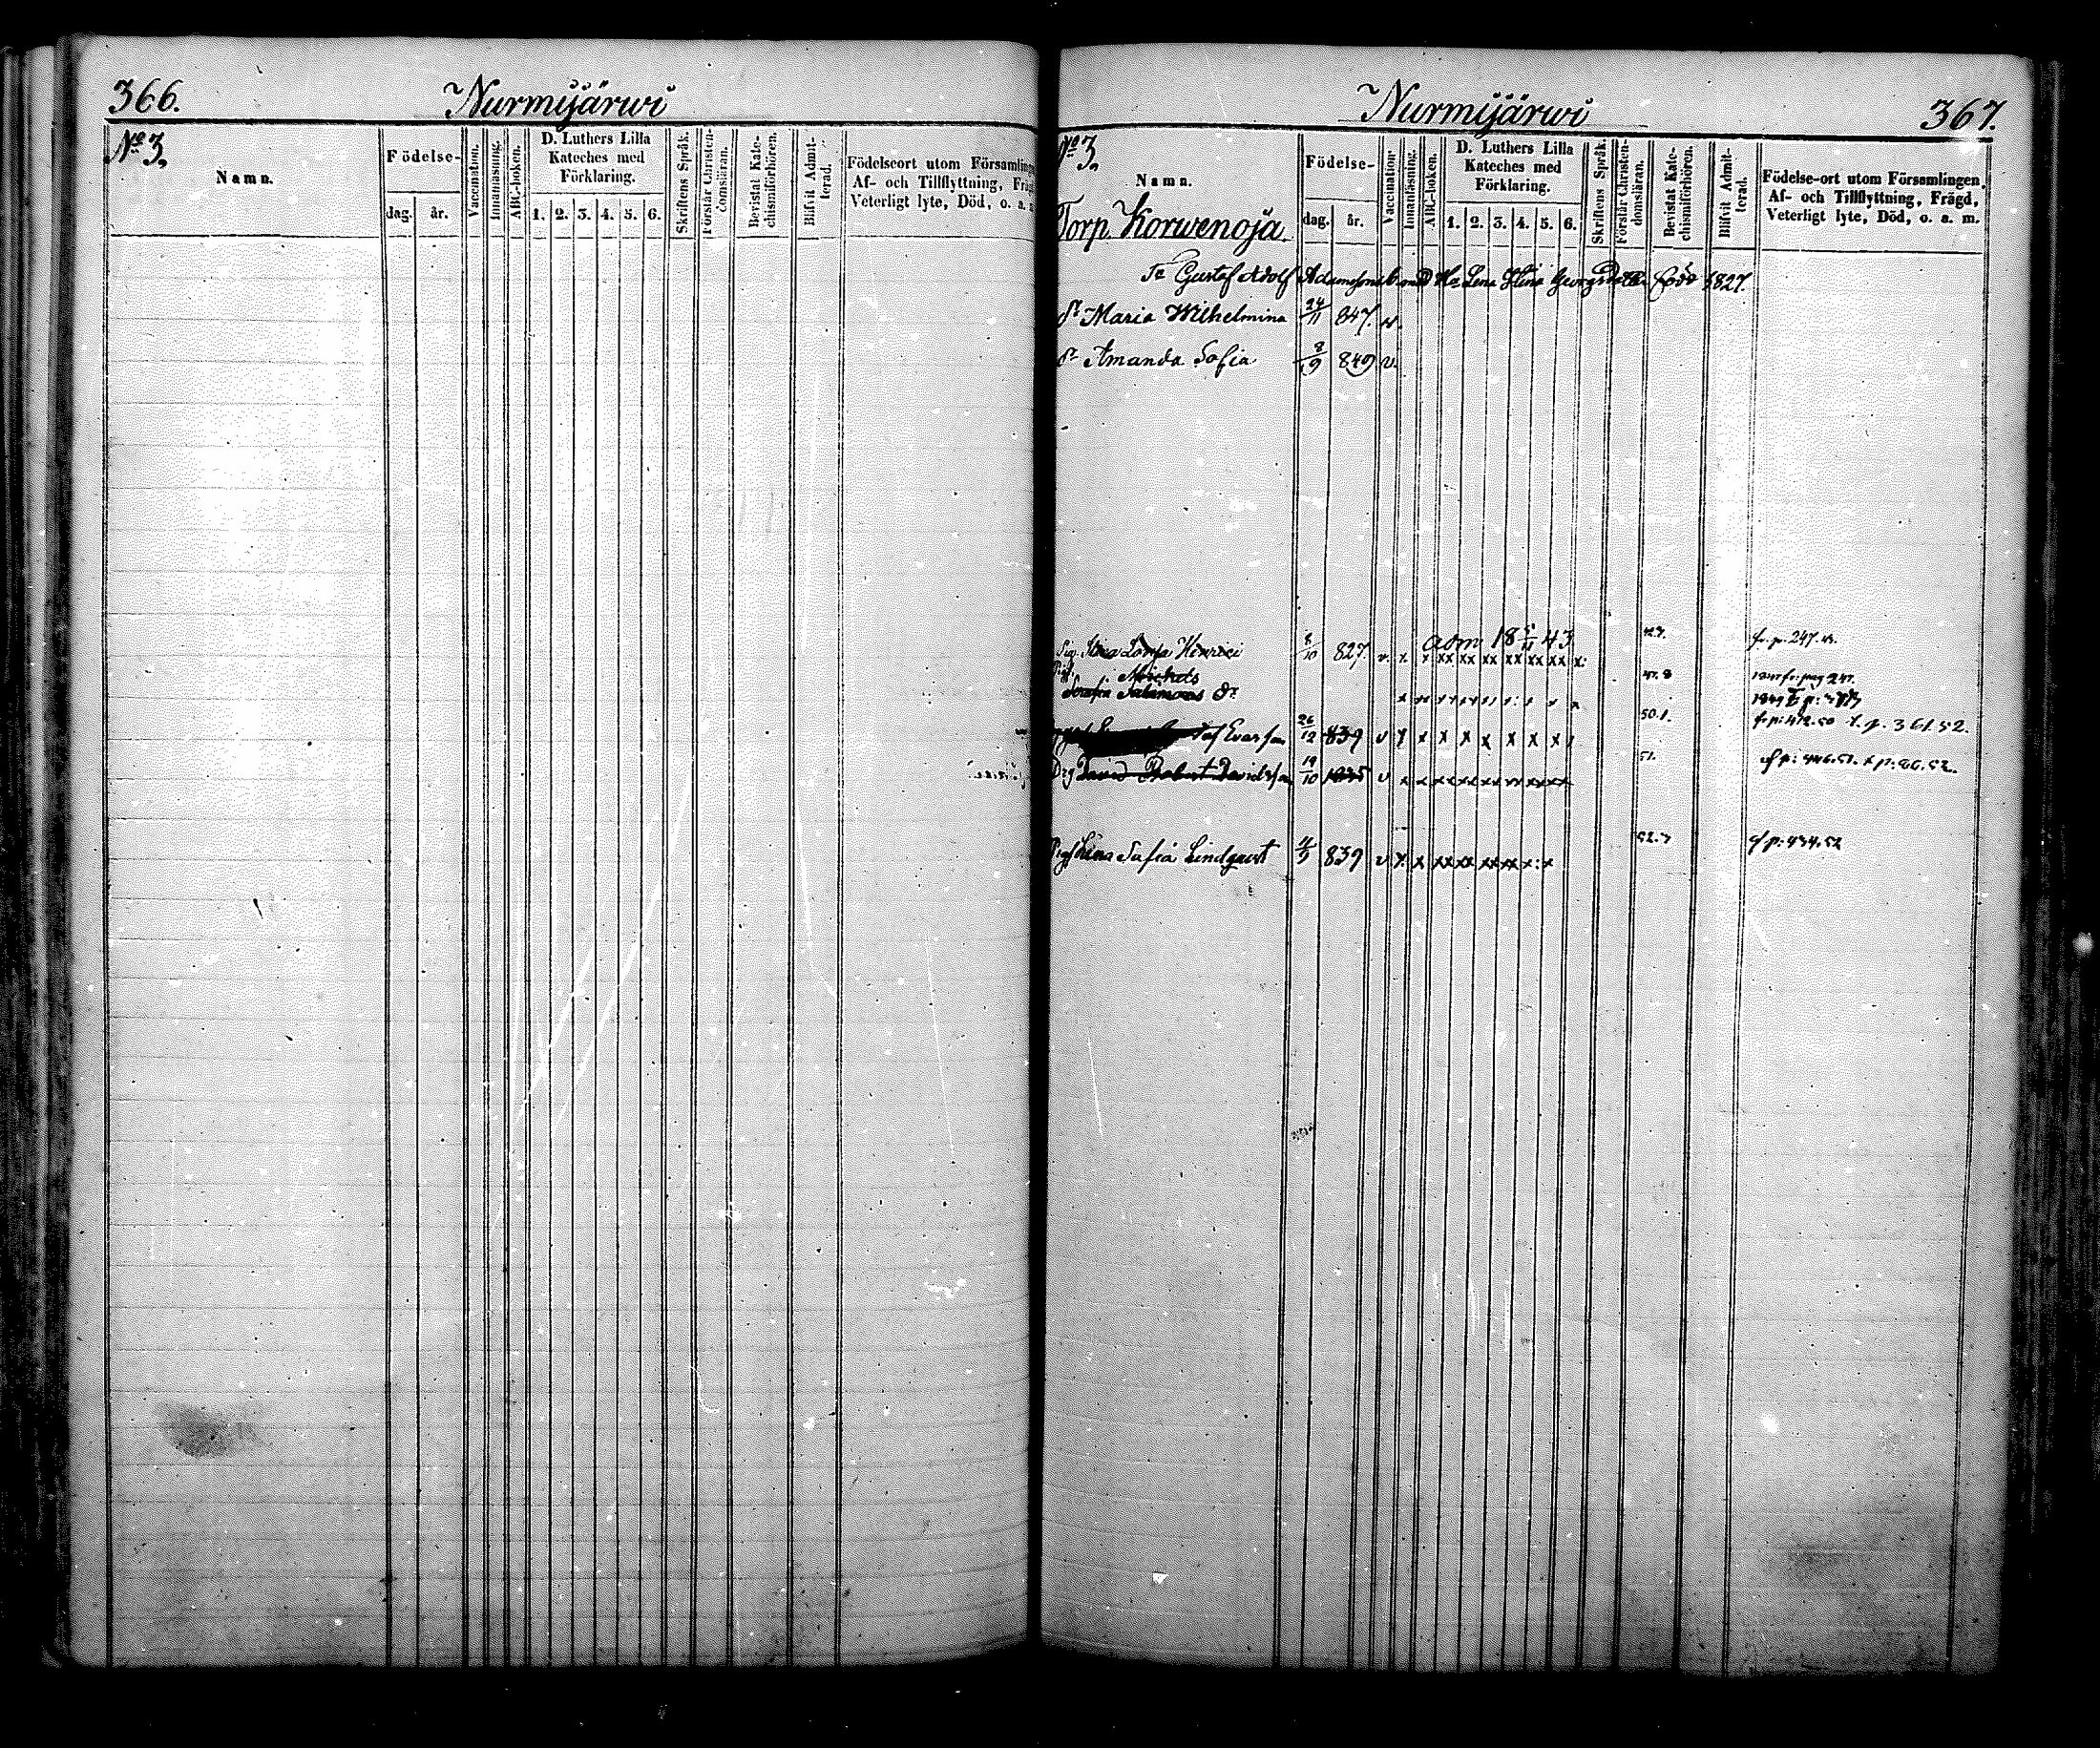 366.
Nurmijärwi
No 3.
Namn.
Födelse-
dag. år.
Vaccination.
Innanläsning.
ABC-boken.
D. Luthers Lilla
Kateches med
Förklaring.
1. 2. 3. 4. 5. 6.
Skriftens Språk.
Förstår Christen-
domsläran.
Bevistat Kate-
chismiförhören.
Blifvit Admit-
terad.
Födelseort utom Församlingen
Af- och Tillflyttning,
Veterligt lyte, Död, o. a. m.
Nurmijärwi
367.
No 3.
Namn.
Torp. Korwenoja.
Födelse-
dag. år.
Vaccination.
Innanläsning.
ABC-boken.
D. Luthers Lilla
Kateches med
Förklaring.
1. 2. 3. 4. 5. 6.
Skriftens Språk.
Förstår Christen-
domsläran.
Bevistat Kate-
chismiförhören.
Blifvit Admit-
terad.
Födelse-ort utom Församlingen.
Af- och Tillflyttning, Frägd,
Veterligt lyte, Död, o. a. m.
Gustaf Adolf Adamsson Lena Stina 1827.
Dr Maria Wilhelmina 24/11 847. v.
Dr Amanda Sofia 8/9 849 v.
adm 18 43
Henrici 8/10 827. v. x x xx xx xx xx xx xx x f. p. 247.
Michels
Sofia Salomons Dr
26/12 839 v x x x x x x x x 50.1. f. p. 412.50 t. p. 361.52.
Drg David Robert Davidsson 19/10 1835 v 51. t p.
Pig Lena Sofia Lindqvist 839 v x x xx xx xx xx x x 52. f. p. 434.52